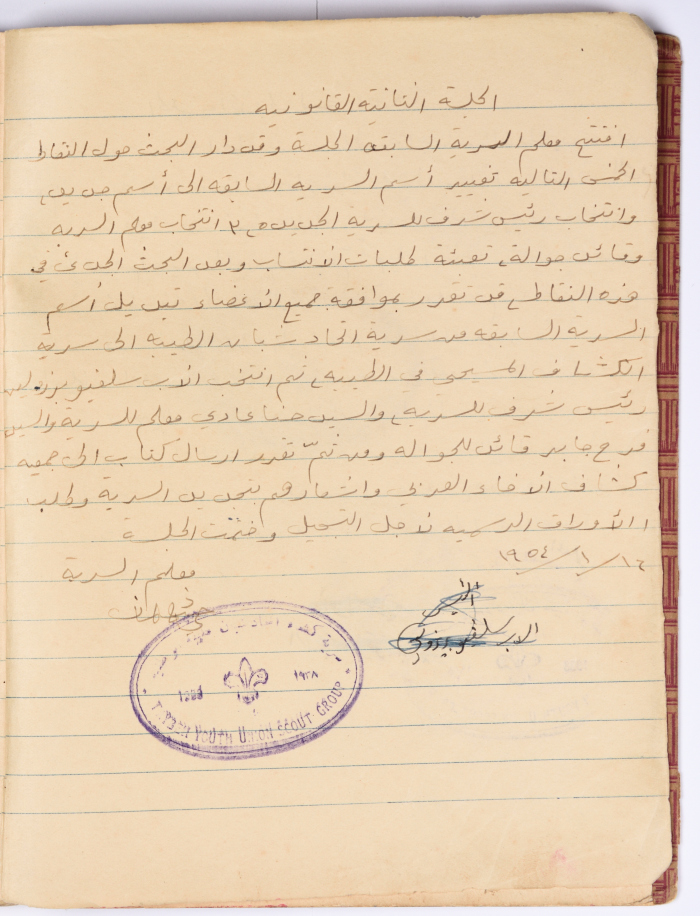 الجلسة الثانية القانونيه
افتتح معلم السرية السابقه الجلسة وقد دار البحث حول النقاط
الخمس التاليه تغيير أسم السريه السابقه الى أسم جديد,
وانتخاب رئيس شرف للسرية الجديده, ٣ انتخاب معلم السريه
وقائد جوالة, تعبئة طلبات الانتساب وبعد البحث الجدي في
هذه النقاط, قد تقرر بموافقة جميع الأعضاء تبديل أسم
السرية السابقه من سرية اتحاد شبان الطيبه الى سرية
الكشاف المسيحي في الطيبه, ثم انتخب الاب سلفيو
رئيس شرف للسرية, والسيد حنا عادي معلم للسرية والسيد
فرح جابر قائد للجواله ومن ثمّ تقرر ارسال كتاب الى جمعيه
كشاف الاخاء العربي واشعارهم بتجديد السرية وطلب
الأوراق الرسميه لاجل التسجيل وختمت الجلسة
١٦/١/١٩٥٤
معلم السرية
الرئيس
الاب سلفيو
١٩٣٨
TAYBEH YOUTH UNION SCOUT GROUP